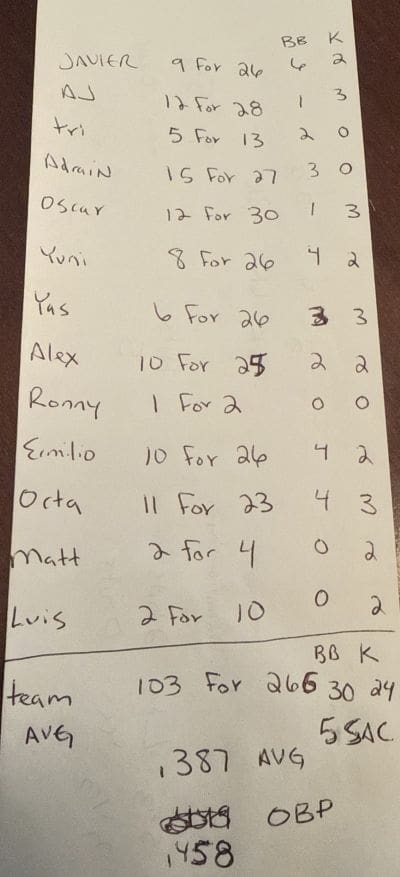 BB K
JAVIER 9 For 26 6 2
AJ 12 For 28 1 3
tri 5 For 13 2 0
AdraiN 15 For 27 3 0
Oscar 12 For 30 1 3
Yuni 8 For 26 4 2
Yas 6 For 26 3 3
Alex 10 For 25 2 2
Ronny 1 For 2 0 0
Emilio 10 For 26 4 2
Octa 11 For 23 4 3
Matt 2 for 4 0 2
Luis 2 For 10 0 2
BB K
team 103 For 266 30 24
AVG 5 SAC
.387 AVG
OBP
.458